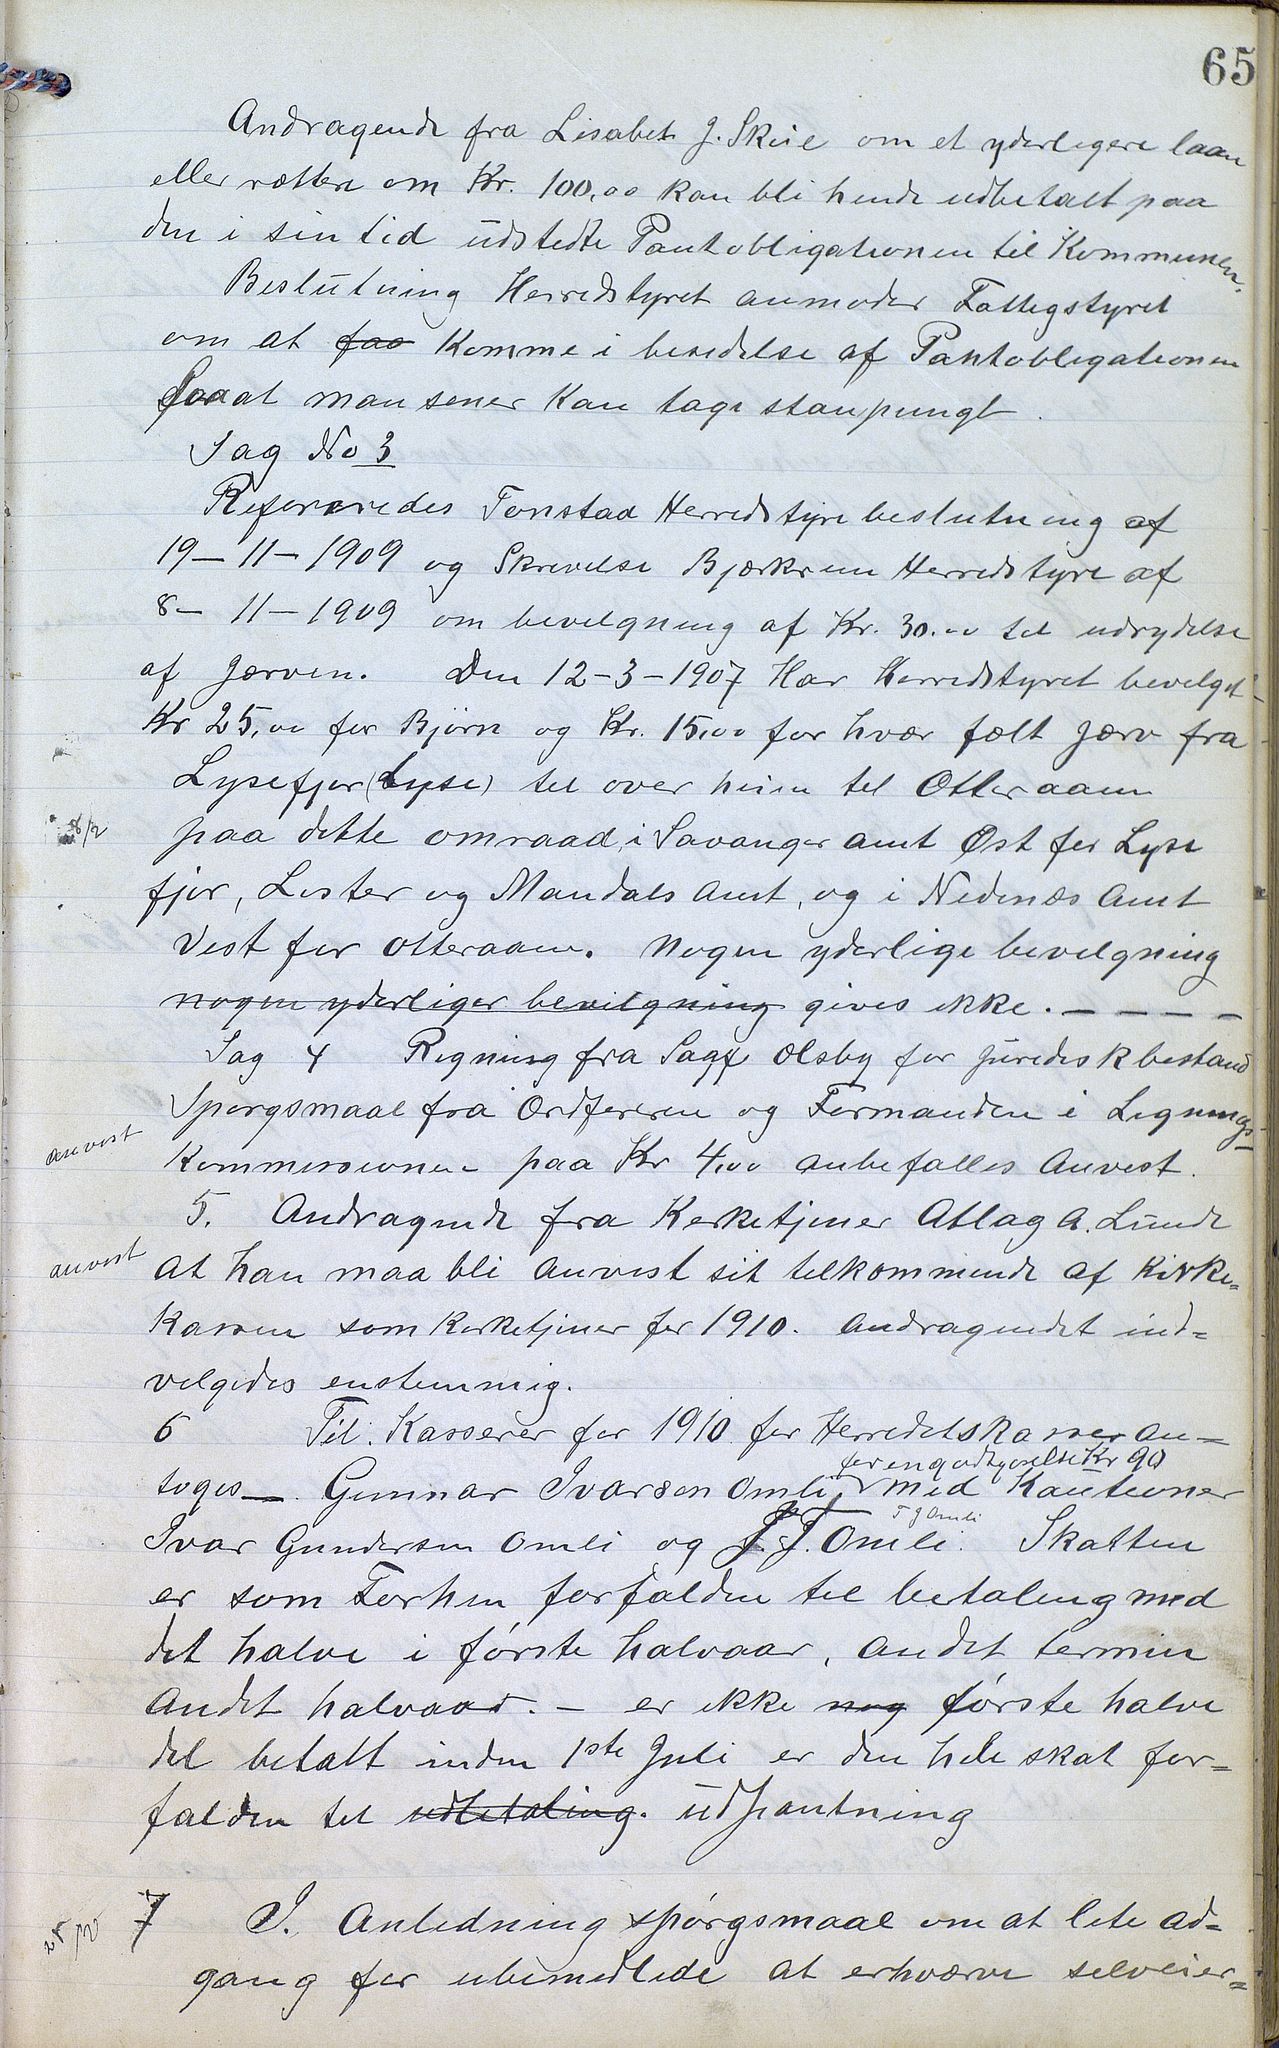 65
Andragende fra Lisabet J. Skeie om et yderligere laan
eller rættere om Kr. 100,00 kan bli hende udbetalt paa
den i sin tid udstedte Pantobligationen til Kommunen.
Beslutning Herredstyret anmoder Fattigstyret
om at faa komme i besidelse af Pantobligationen
saaat man sener kan tage stanpungt.
Sag No 3
Refereredes Tonstad Herredstyrebeslutning af
19-11-1909 og Skrivelse Bjerkreim Herredstyre af
8-11-1909 om bevilgning af Kr. 30.00 til udrydelse
af Jærven. Den 12-3-1907 Har Herredstyret bevilget
Kr 25,00 for Bjørn og Kr. 15,00 for hvær fælt Jærv fra
Lysefjor (Lyse) til over heien til Otteraaen
paa dette omraad, i Savanger amt Øst for Lyse
fjor, Lister og Mandals Amt, og i Nedenæs Amt
Vest for Otteraaen. Nogen yderlige bevilgning
nogen yderliger bevilgning gives ikke. - - - -
Sag 4 Regning fra Sagf Olsby for Juredisk bestand
Spørgsmaal fra Ordføreren og Formanden i Lignings-
anvist
Kommissionen paa Kr 4,00 anbefalles Anvist.
5. Andragende fra Kirketjener Atlag A. Lunde
anvist
at han maa bli anvist sit tilkommende af Kirke=
Kassen som Kirketjener for 1910. Andragendet ind=
vilgedes enstemmig.
6 Til Kasserer for 1910 for Herredetskasser an=
for en godtgørelse Kr 90
toges - Gunnar Ivarsen Omli med Kautioner
T J Omli
Ivar Gundersen Omli og J. T. Omli. Skatten
er som Forhen forfalden til betaling med
det halve i første halvaar, andet termin
andet halvaar. - er ikke nog første halve
del betalt inden 1ste Juli er den hele skat for=
falden til udbetaling. udpantning
7 I. Anledning spørgsmaal om at lete ad=
gang for ubemidlede at erhværve selveier=